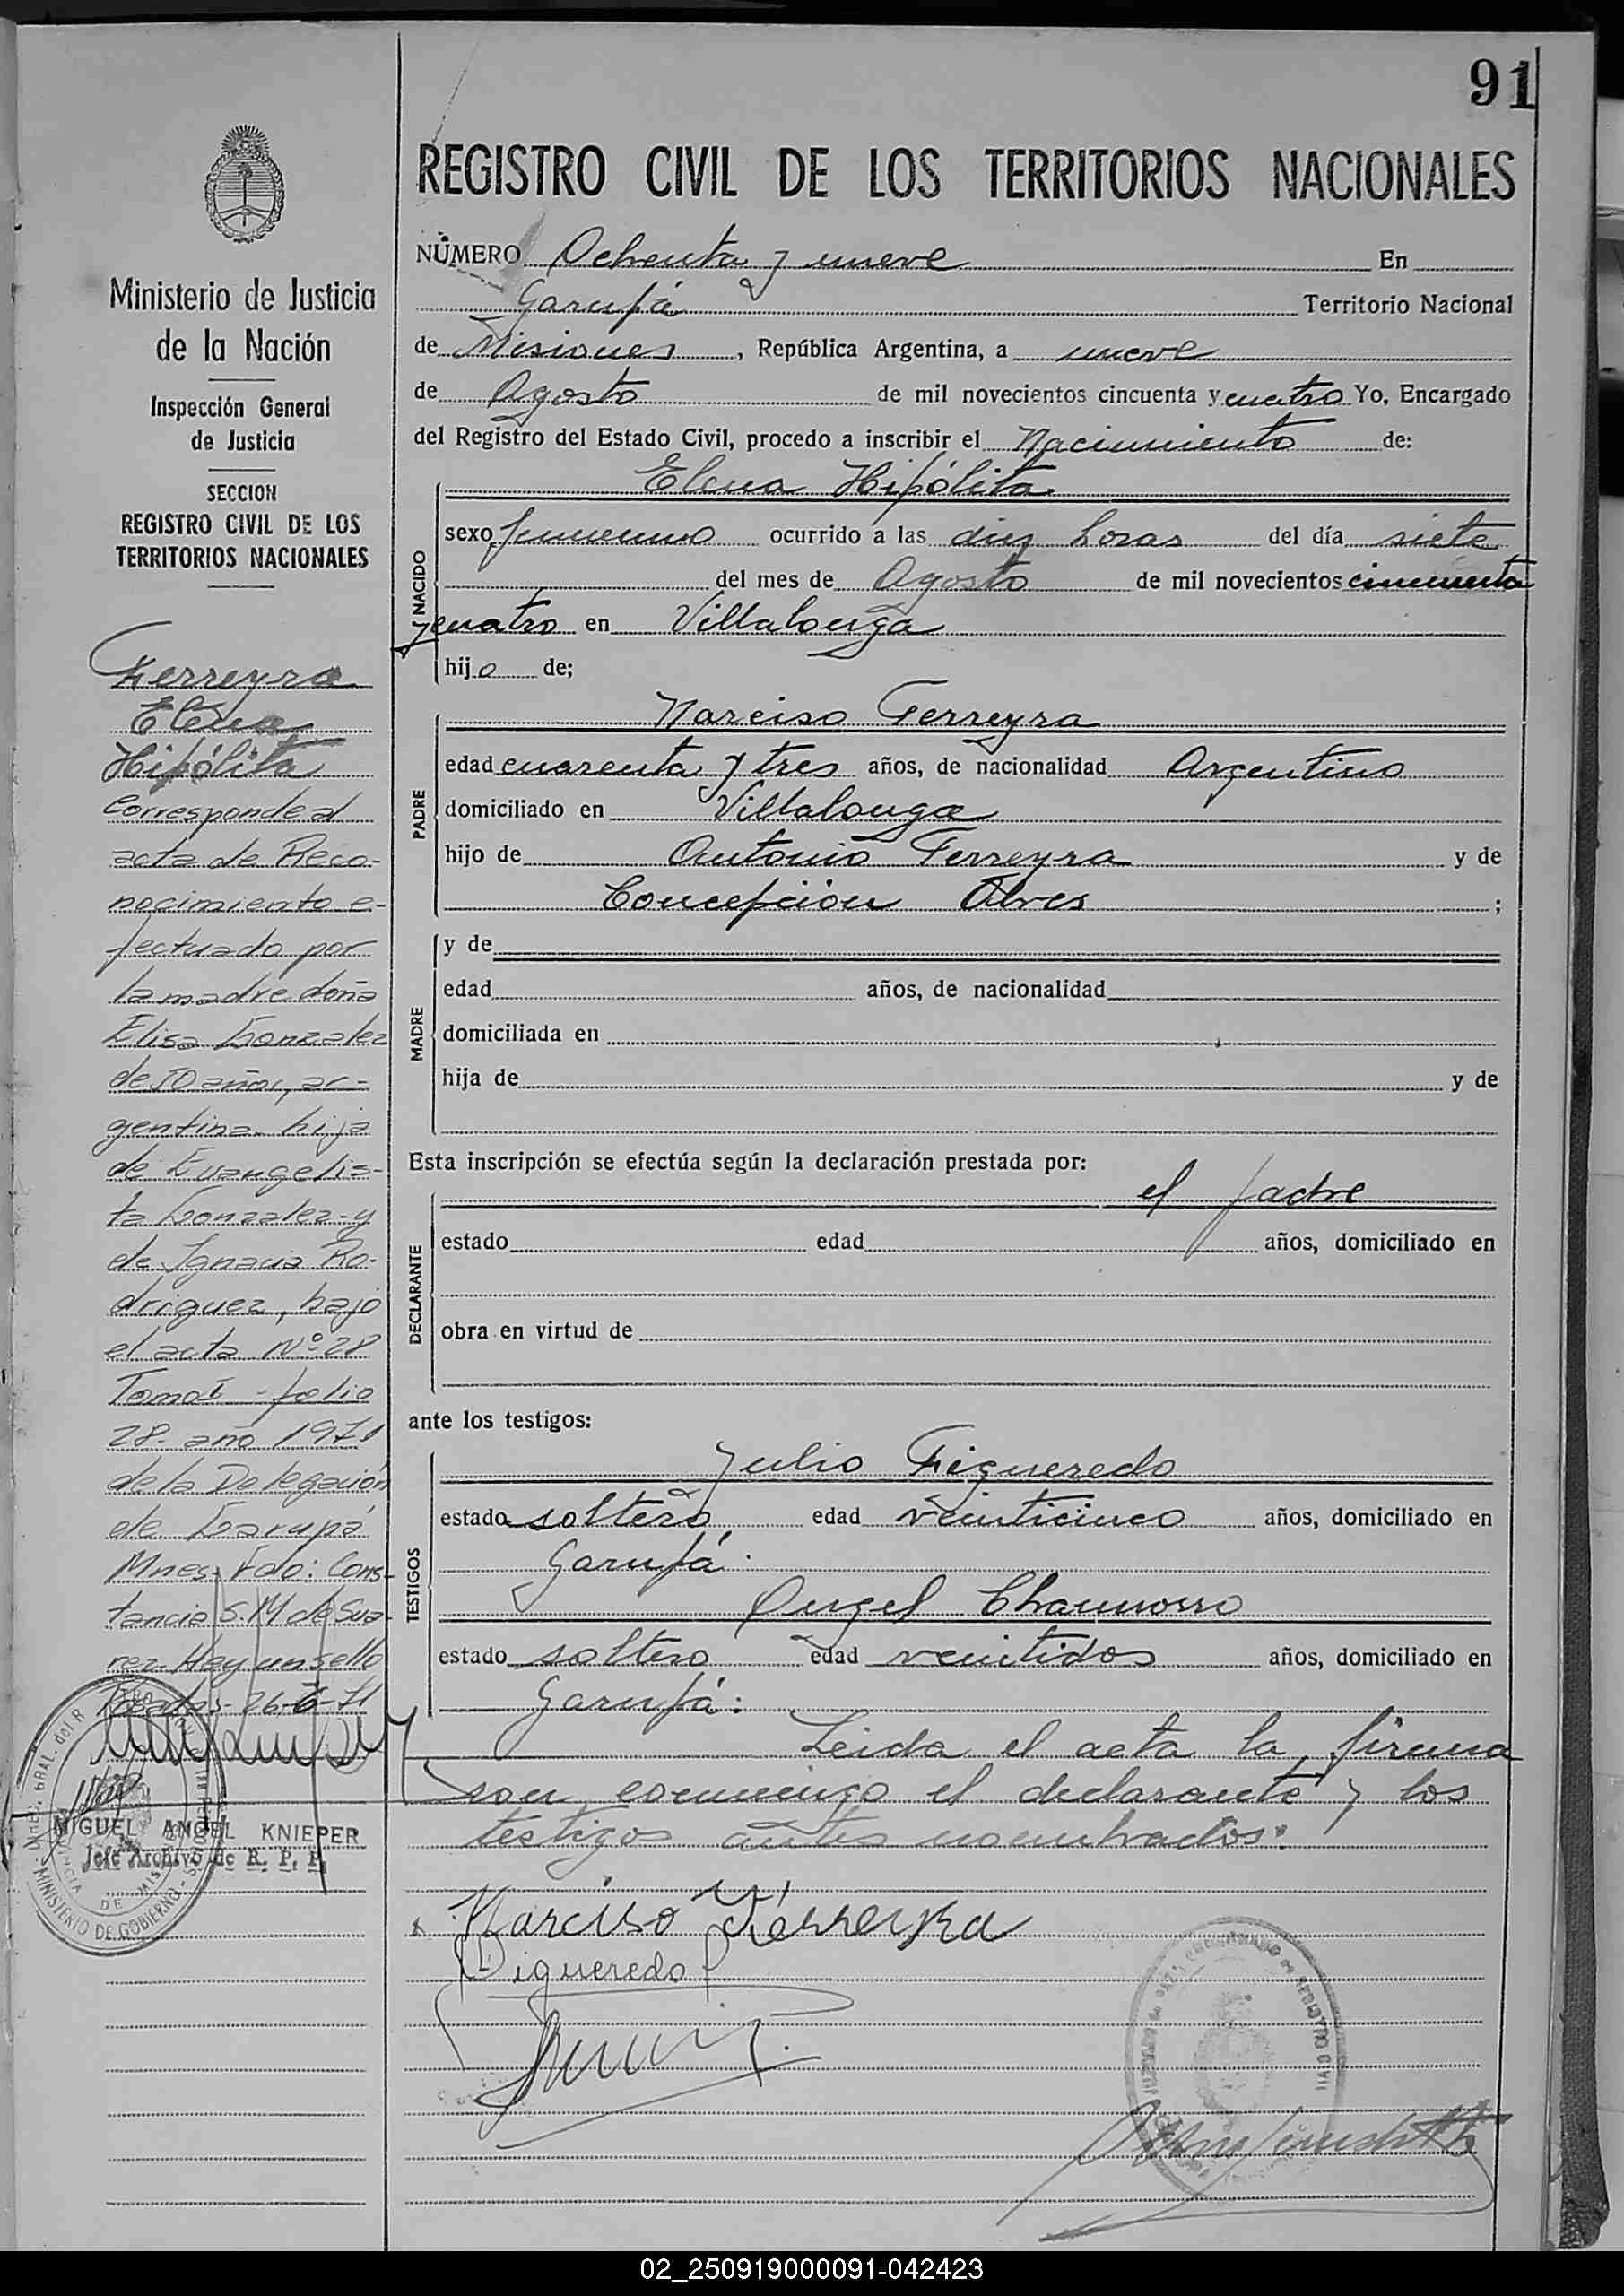 91
REGISTRO CIVIL DE LOS TERRITORIOS NACIONALES
NÚMERO Ochenta y nueve En
Garupá Territorio Nacional
de Misiones, República Argentina, a nueve
de Agosto de mil novecientos cincuenta y cuatro Yo, Encargado
del Registro del Estado Civil, procedo a inscribir el Nacimiento de:
Elena Hipólita
NACIDO
sexo femenino ocurrido a las diez horas del día siete
del mes de Agosto de mil novecientos cincuenta
y cuatro en Villalonga
hijo de;
PADRE
Narciso Ferreyra
edad cuarenta y tres años, de nacionalidad Argentino
domiciliado en Villalonga
hijo de Antonio Ferreyra y de
Concepción Alves ;
MADRE
y de
edad años, de nacionalidad
domiciliada en
hija de y de
Esta inscripción se efectúa según la declaración prestada por:
el padre
DECLARANTE
estado edad años, domiciliado en
obra en virtud de
ante los testigos:
TESTIGOS
Julio Figueredo
estado soltero edad veinticinco años, domiciliado en
Garupá.
Angel Chamorro
estado soltero edad veintidos años, domiciliado en
Garupá:
Leida el acta la firma
son conmigo el declarante y los
testigos antes nombrados:
Narciso Ferreyra
Figueredo
Ministerio de Justicia
de la Nación
Inspección General
de Justicia
SECCION
REGISTRO CIVIL DE LOS
TERRITORIOS NACIONALES
Ferreyra
Elena
Hipólita
Corresponde al
acta de Reco-
nocimiento e-
fectuado por
la madre doña
Elisa Gonzalez
de 50 años, ar-
gentina hija
de Evangelis-
ta Gonzalez y
de Ignacia Ro-
driguez, bajo
el acta Nº 28
Tomo I - folio
28 - año 1971
de la Delegación
de Garupá
Mnes. Fdo: Cons-
tancia S. M de Sua-
rez. Hay un sello
Posadas - 26-6-71
MIGUEL ANGEL KNIEPER
Jefe Archivo de R. P. P.
MINISTERIO DE GOBIERNO
02_250919000091-042423